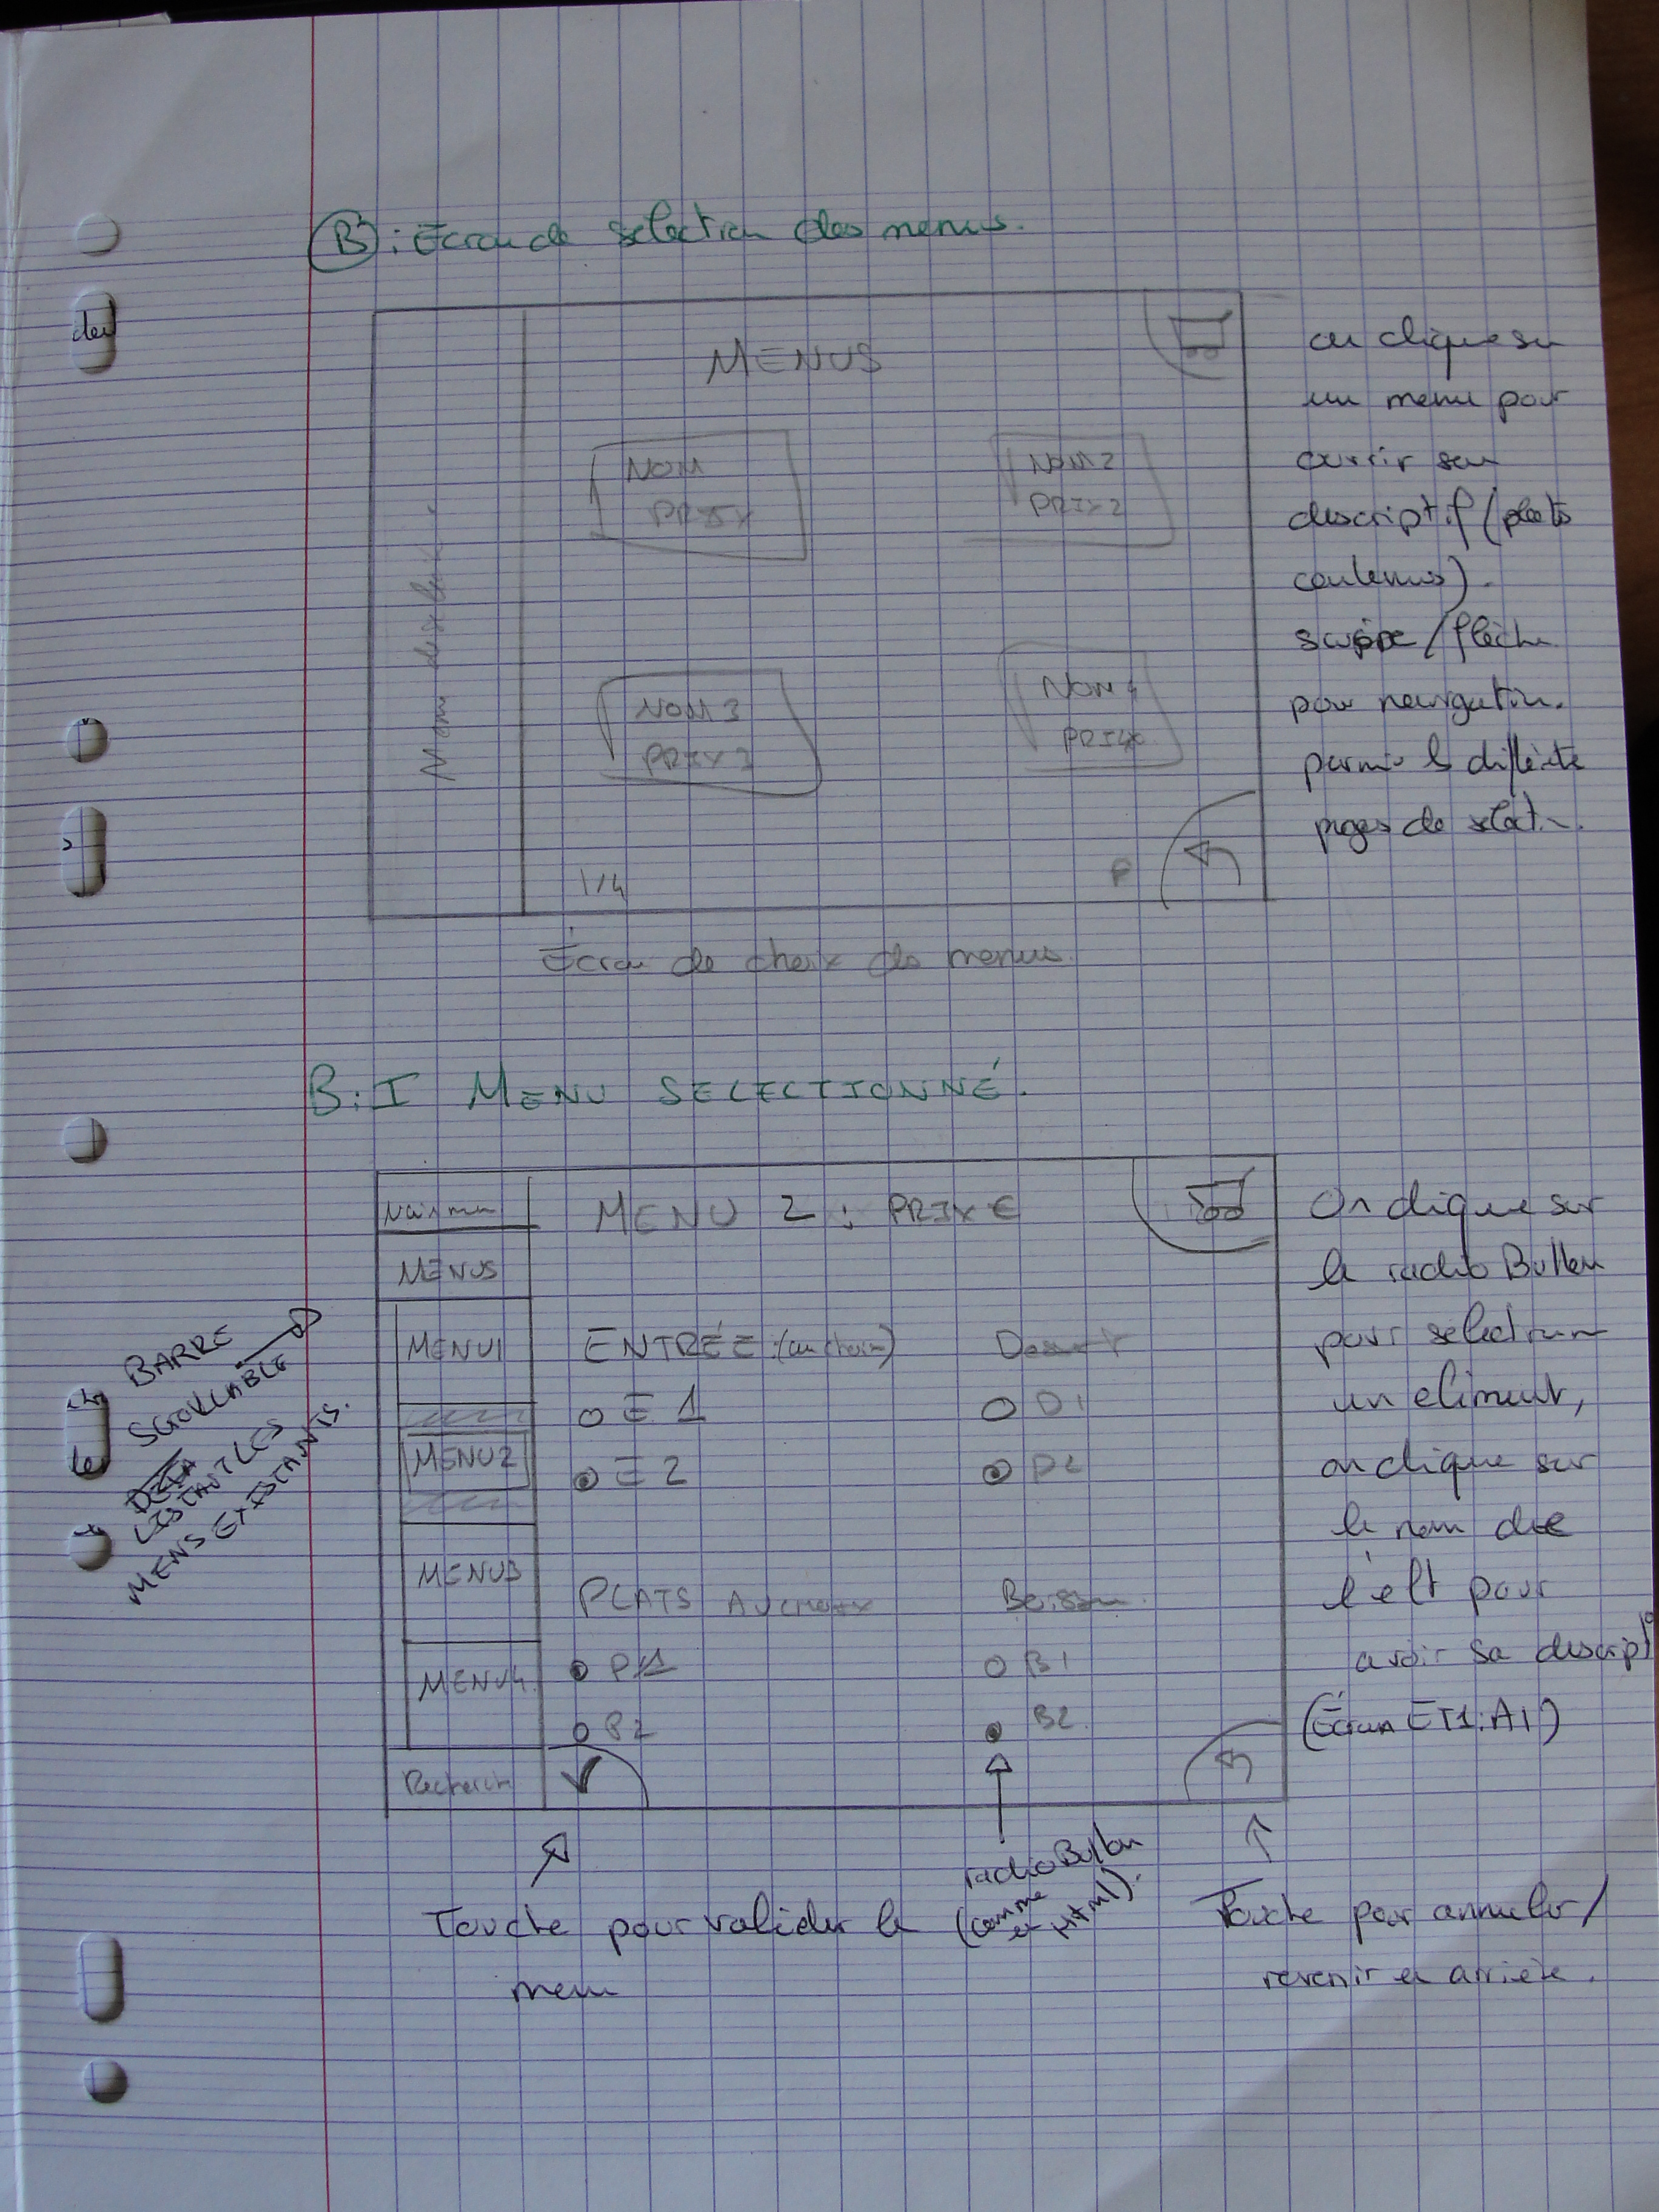 B : Écran de selection des menus.
MENUS
on clique sur
un menu pour
ouvrir son
descriptif (plats
contenus).
swipe / flèche
pour navigation.
parmis les différente
pages de selection.
NOM
PRIX
NOM 2
PRIX 2
NOM 3
PRIX 3
NOM 4
PRIX
1/4
Écran de choix des menus.
B:I MENU SELECTIONNÉ.
MENU 2 : PRIX €
MENUS
MENU1
MENU2
MENU3
MENU4
Recherche
ENTRÉE : (au choix)
E 1
E 2
Dessert
D1
D2
PLATS AU CHOIX
P1
P2
Boisson
B1
B2
BARRE
SCROLLABLE
LISTANT LES
MENS EXISTANTS.
On clique sur
le radio Button
pour selectionner
un element,
on clique sur
le nom de
l'elt pour
avoir sa descript
(Écran ET1:A1)
Touche pour valider le
menu
radio Button
(comme
en Html).
Touche pour annuler/
revenir en arrière.